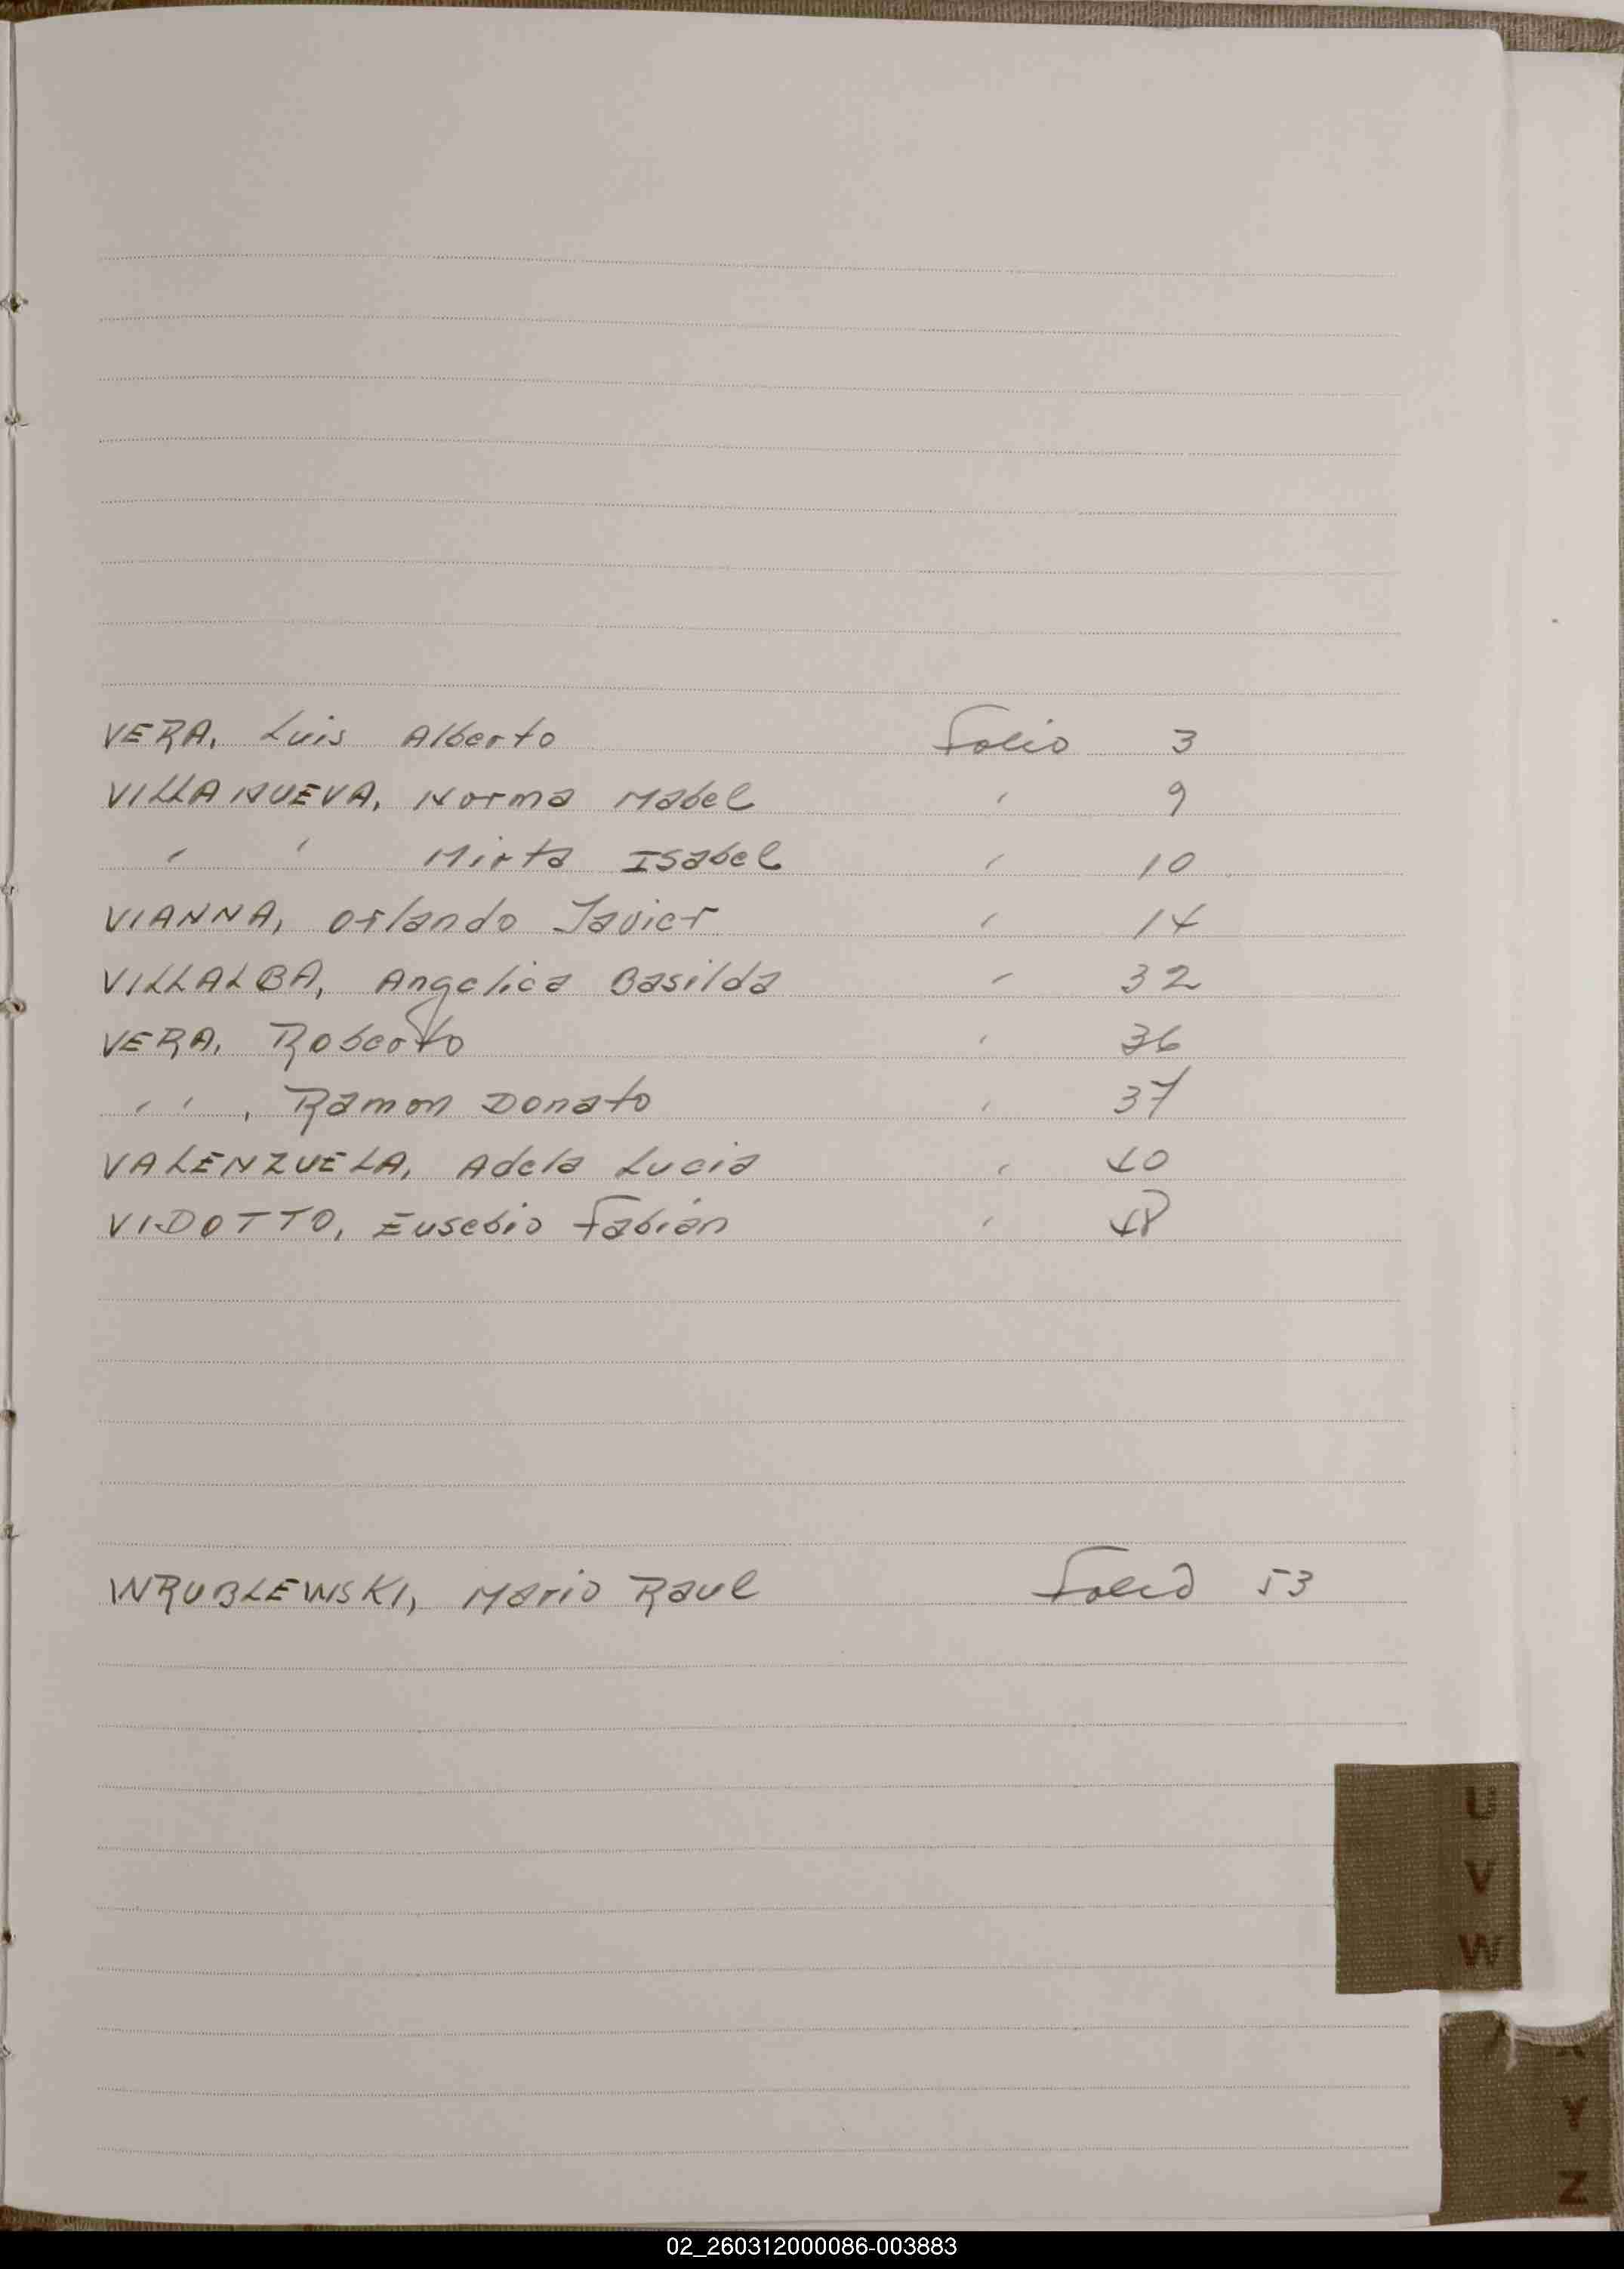 VERA, Luis Alberto Folio 3
VILLANUEVA, Norma Mabel " 9
" " Mirta Isabel " 10
VIANNA, Orlando Javier " 14
VILLALBA, Angelica Basilda " 32
VERA, Roberto " 36
" ", Ramon Donato " 37
VALENZUELA, Adela Lucia " 40
VIDOTTO, Eusebio Fabián " 48
WRUBLEWSKI, Mario Raul Folio 53
U
V
W
Y
Z
02_260312000086-003883